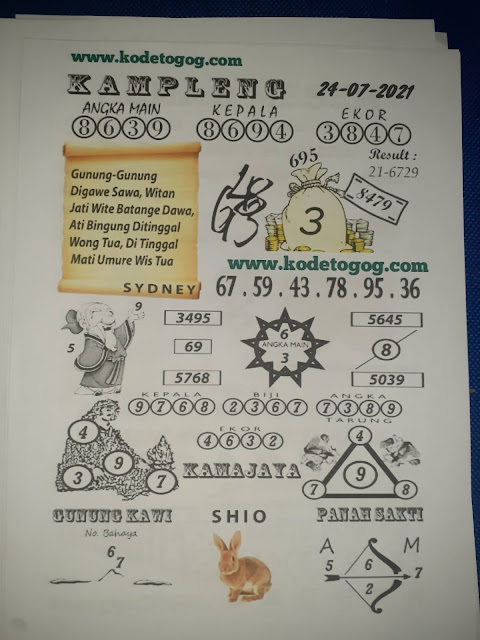 www.kodetogog.com
KAMPLENG 24-07-2021
ANGKA MAIN KEPALA EKOR
8639 8694 3847
695
Result :
21-6729
8479
3
Gunung-Gunung
Digawe Sawa, Witan
Jati Wite Batange Dawa,
Ati Bingung Ditinggal
Wong Tua, Di Tinggal
Mati Umure Wis Tua
SYDNEY
www.kodetogog.com
67.59.43.78.95.36
9
5
3495
69
5768
6
ANGKA MAIN
3
5645
8
5039
KEPALA BIJI ANGKA
9768 2367 7389
TARUNG
EKOR
4632
4
9
3 7
KAMAJAYA
4
9
7 8
GUNUNG KAWI SHIO PANAH SAKTI
No. Bahaya
6
7
A M
5 6 7
2